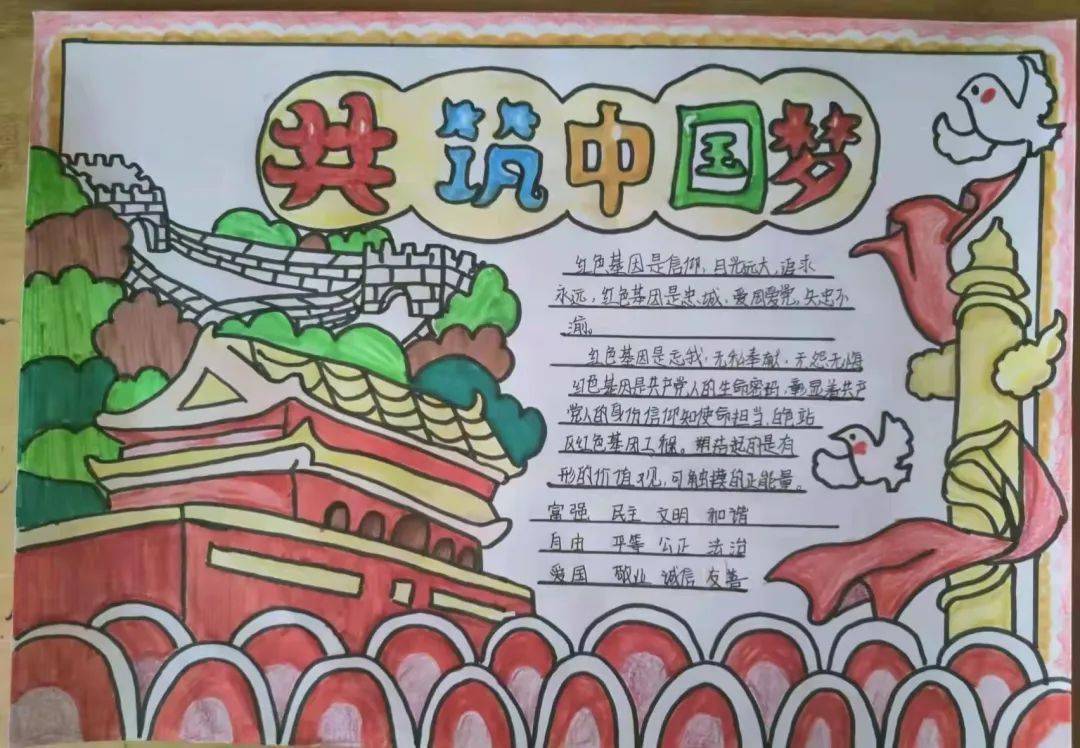 共筑中国梦
红色基因是信仰,目光远大,追求
永远,红色基因是忠诚,爱国爱党,矢忠不
渝。
红色基因是忘我,无私奉献,无怨无悔
红色基因是共产党人的生命密码,彰显着共产
党人的身份信仰和使命担当,色站
区红色基因工程。期待起的是有
形的价值观,可触摸的正能量。
富强 民主 文明 和谐
自由 平等 公正 法治
爱国 敬业 诚信 友善